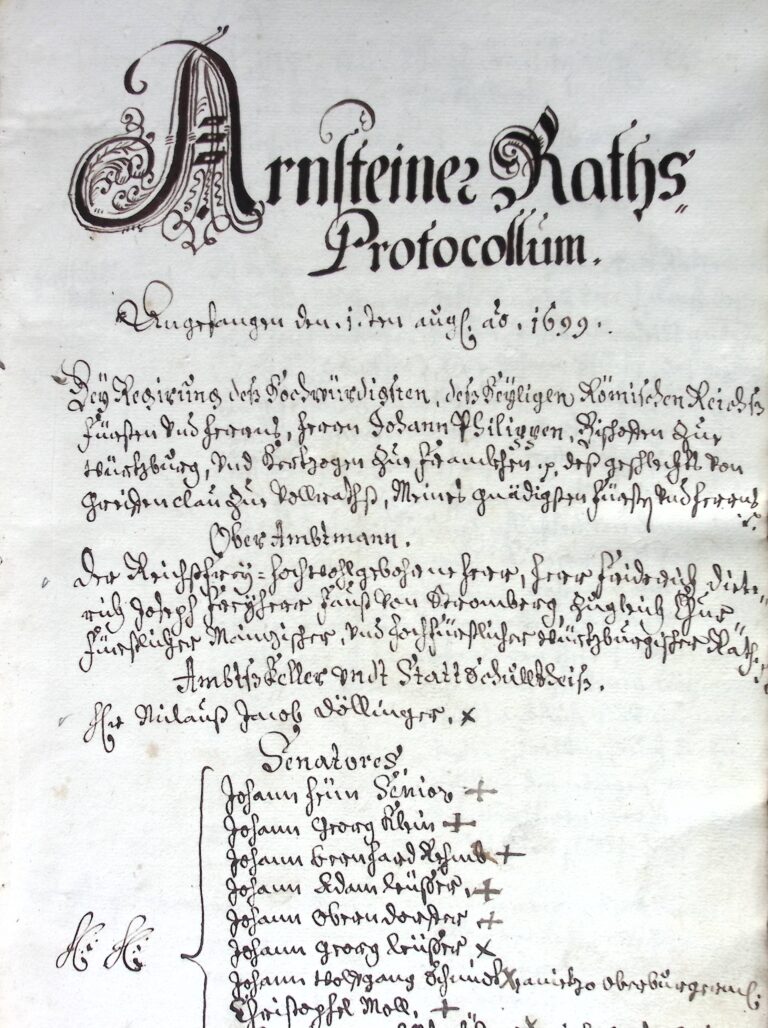 Arnsteiner Raths
Protocollum.
Angefangen den 1.ten aug. ao. 1699.
Bey Regirung deß Hochwürdigsten, deß Heyligen Römischen Reichß
Fürsten vnd herrens, herrn Johann Philippen, Bischoffen zue
würtzburg, vnd Hertzogen zue Franckhen p. deß geschlechts von
Greiffenclau zue Vollrathß, Meines gnädigsten Fürsten vnd herrens
Ober Ambtmann.
Der Reichßfrey-hochwohlgebohrne herr, herr Friderich Diete-
rich Joseph Freyherr Faust von Stromberg zugleich Chur-
fürstlicher Mainzischer, vnd hochfürstlicher würtzburgischer Rath
Ambtßkeller vndt Stattschultheiß.
Hr Niclauß Jacob Döllinger. x
Senatores
Johann Senior +
Johann Georg Klein +
Johann Bernhard +
Johann Adam Leüsser, +
Johann Oberndorffer +
Johann Georg Leüsser, x
Johann Wolffgang Schmidt x oberburgerm:
Christophel Moll, +
H. H.